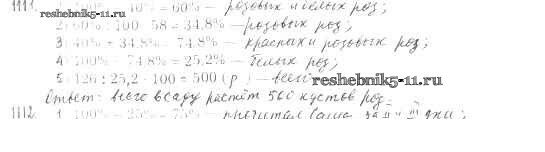 1111. 1) 100% - 40% = 60% — розовых и белых роз;
2) 60% : 100 · 58 = 34,8% — розовых роз;
3) 40% + 34,8% = 74,8% — красных и розовых роз;
4) 100% - 74,8% = 25,2% — белых роз;
5) 126 : 25,2 · 100 = 500 (р.) — всего
reshebnik5-11.ru
Ответ: всего в саду растёт 500 кустов роз.
1112. 1) 100% - 25% = 75% — прочитал Саша за II и III дни;
reshebnik5-11.ru